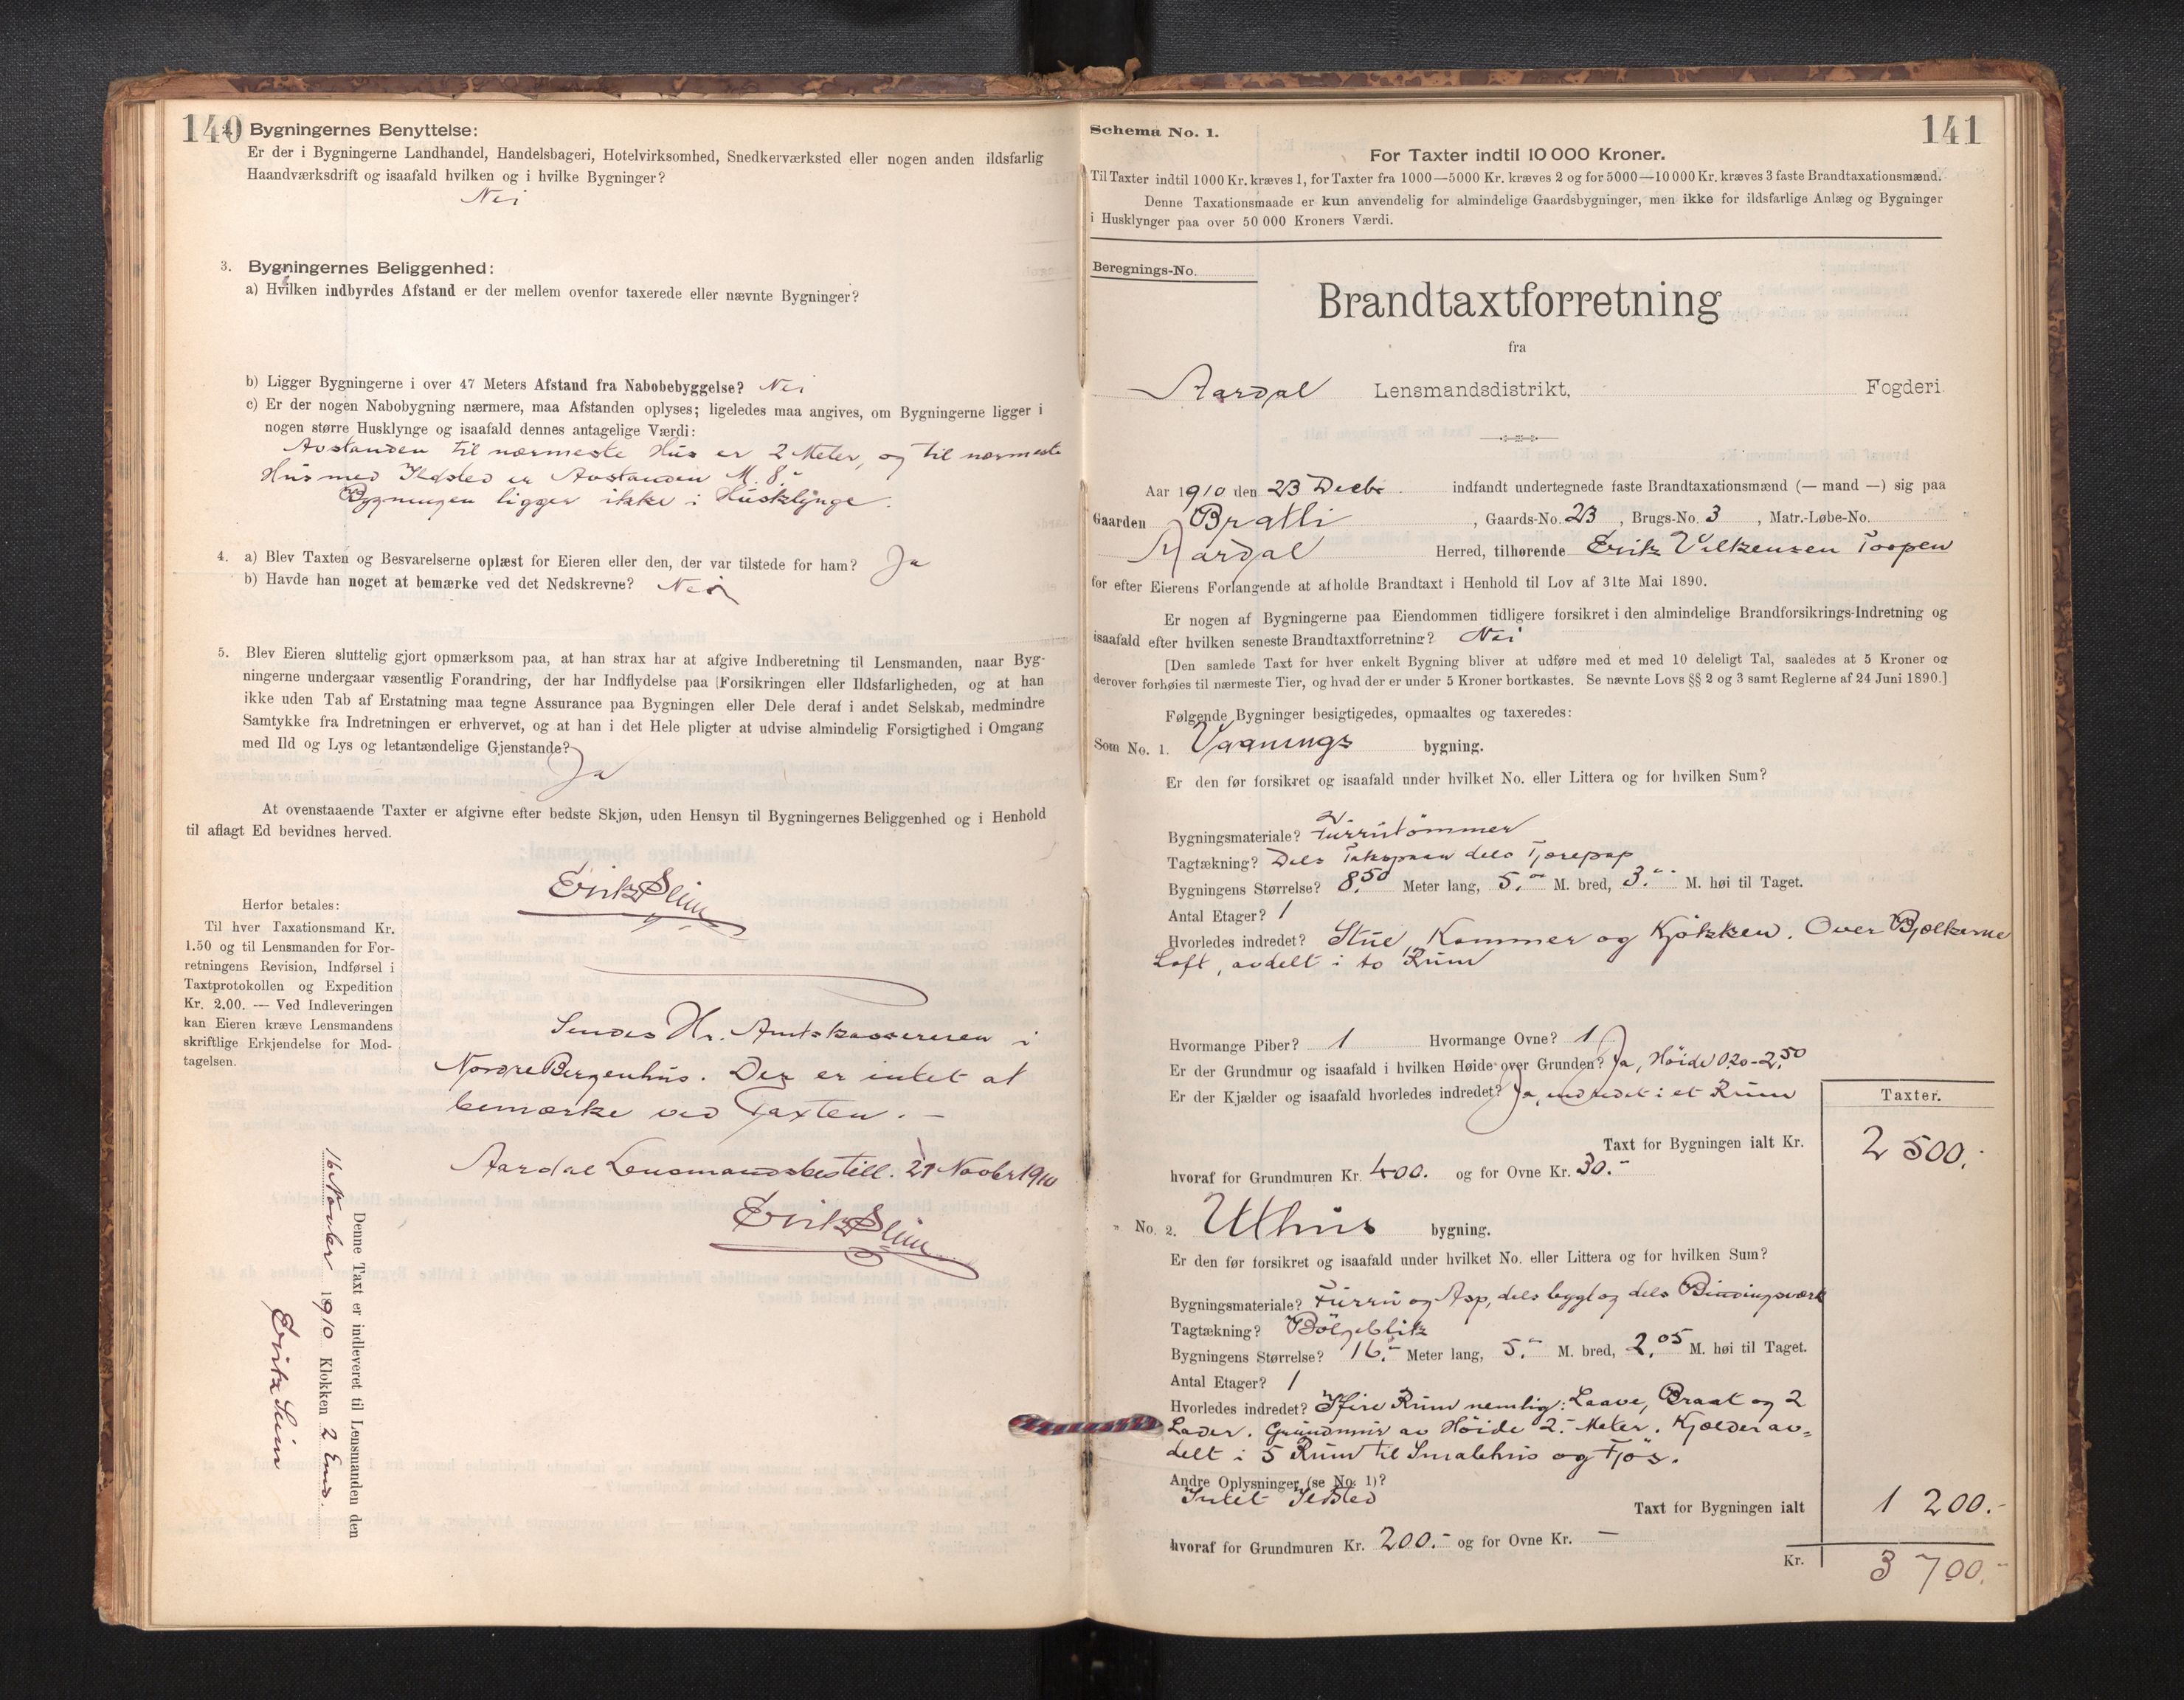 140
Bygningernes Benyttelse:
Er der i Bygningerne Landhandel, Handelsbageri, Hotelvirksomhed, Snedkerværksted eller nogen anden ildsfarlig
Haandværksdrift og isaafald hvilken og i hvilke Bygninger?
Nei
3. Bygningernes Beliggenhed:
a) Hvilken indbyrdes Afstand er der mellem ovenfor taxerede eller nævnte Bygninger?
b) Ligger Bygningerne i over 47 Meters Afstand fra Nabobebyggelse? Nei
c) Er der nogen Nabobygning nærmere, maa Afstanden oplyses; ligeledes maa angives, om Bygningerne ligger i
nogen større Husklynge og isaafald dennes antagelige Værdi:
Avstanden til nærmeste Hus er 2 Meter, og til nærmeste
Hus med Ildsted er Avstanden M. 8.-
Bygningen ligger ikke i Husklynge.
4. a) Blev Taxten og Besvarelserne oplæst for Eieren eller den, der var tilstede for ham? Ja
b) Havde han noget at bemærke ved det Nedskrevne? Nei
5. Blev Eieren sluttelig gjort opmærksom paa, at han strax har at afgive Indberetning til Lensmanden, naar Byg-
ningerne undergaar væsentlig Forandring, der har Indflydelse paa Forsikringen eller Ildsfarligheden, og at han
ikke uden Tab af Erstatning maa tegne Assurance paa Bygningen eller Dele deraf i andet Selskab, medmindre
Samtykke fra Indretningen er erhvervet, og at han i det Hele pligter at udvise almindelig Forsigtighed i Omgang
med Ild og Lys og letantændelige Gjenstande?
Ja
At ovenstaaende Taxter er afgivne efter bedste Skjøn, uden Hensyn til Bygningernes Beliggenhed og i Henhold
til aflagt Ed bevidnes herved.
Erik Slinn
Herfor betales:
Til hver Taxationsmand Kr.
1.50 og til Lensmanden for For-
retningens Revision, Indførsel i
Taxtprotokollen og Expedition
Kr. 2.00. — Ved Indleveringen
kan Eieren kræve Lensmandens
skriftlige Erkjendelse for Mod-
tagelsen.
Sendes Hr. Amtskassereren i
Nordre Bergenhus. Der er intet at
bemærke ved Taxten. -
Aardal Lensmandsbestill. 21 Novbr 1910
Erik Slinn
Denne Taxt er indleveret til Lensmanden den
16 Novbr 1910 Klokken 2 Emd.
Erik Slinn
141
Schema No. 1.
For Taxter indtil 10 000 Kroner.
Til Taxter indtil 1000 Kr. kræves 1, for Taxter fra 1000—5000 Kr. kræves 2 og for 5000—10 000 Kr. kræves 3 faste Brandtaxationsmænd.
Denne Taxationsmaade er kun anvendelig for almindelige Gaardsbygninger, men ikke for ildsfarlige Anlæg og Bygninger
i Husklynger paa over 50 000 Kroners Værdi.
Beregnings-No.
Brandtaxtforretning
fra
Aardal Lensmandsdistrikt, Fogderi
Aar 1910 den 23 Decbr. indfandt undertegnede faste Brandtaxationsmænd (— mand —) sig paa
Gaarden Bratli, Gaards-No. 23, Brugs-No. 3, Matr.-Løbe-No.
Aardal Herred, tilhørende Erik Vilkensen
for efter Eierens Forlangende at afholde Brandtaxt i Henhold til Lov af 31te Mai 1890.
Er nogen af Bygningerne paa Eiendommen tidligere forsikret i den almindelige Brandforsikrings-Indretning og
isaafald efter hvilken seneste Brandtaxtforretning? Nei
[Den samlede Taxt for hver enkelt Bygning bliver at udføre med et med 10 deleligt Tal, saaledes at 5 Kroner og
derover forhøies til nærmeste Tier, og hvad der er under 5 Kroner bortkastes. Se nævnte Lovs §§ 2 og 3 samt Reglerne af 24 Juni 1890.]
Følgende Bygninger besigtigedes, opmaaltes og taxeredes:
Som No. 1. Vaanings bygning.
Er den før forsikret og isaafald under hvilket No. eller Littera og for hvilken Sum?
Bygningsmateriale? Furrutömmer
Tagtækning? Dels Takspaan dels Tjærepap
Bygningens Størrelse? 8.50 Meter lang, 5.- M. bred, 3.- M. høi til Taget.
Antal Etager? 1
Hvorledes indredet? Stue, Kammer og Kjökken. Over Bjælkerne
Loft, avdelt i to Rum
Hvormange Piber? 1 Hvormange Ovne? 1
Er der Grundmur og isaafald i hvilken Høide over Grunden? Ja, Höide 0.20-2.50
Er der Kjælder og isaafald hvorledes indredet? Ja, indredet i et Rum
Taxter.
Taxt for Bygningen ialt Kr. 2 500.-
hvoraf for Grundmuren Kr. 400. og for Ovne Kr. 30.-
" No. 2. Uthus bygning.
Er den før forsikret og isaafald under hvilket No. eller Littera og for hvilken Sum?
Bygningsmateriale? Furru og Asp, dels bygt og dels Bindingsværk
Tagtækning? Bölgeblik
Bygningens Størrelse? 16.- Meter lang, 5.- M. bred, 2.05 M. høi til Taget.
Antal Etager? 1
Hvorledes indredet? Fire Rum nemlig: Laave, Braat og 2
Lader. Grundmur av Höide 2.- Meter. Kjælder av-
delt i 5 Rum til Smalehus og Fjös.
Andre Oplysninger (se No. 1)?
Intet Ildsted
Taxt for Bygningen ialt 1 200.-
hvoraf for Grundmuren Kr. 200.- og for Ovne Kr. —
Kr. 3 700.-